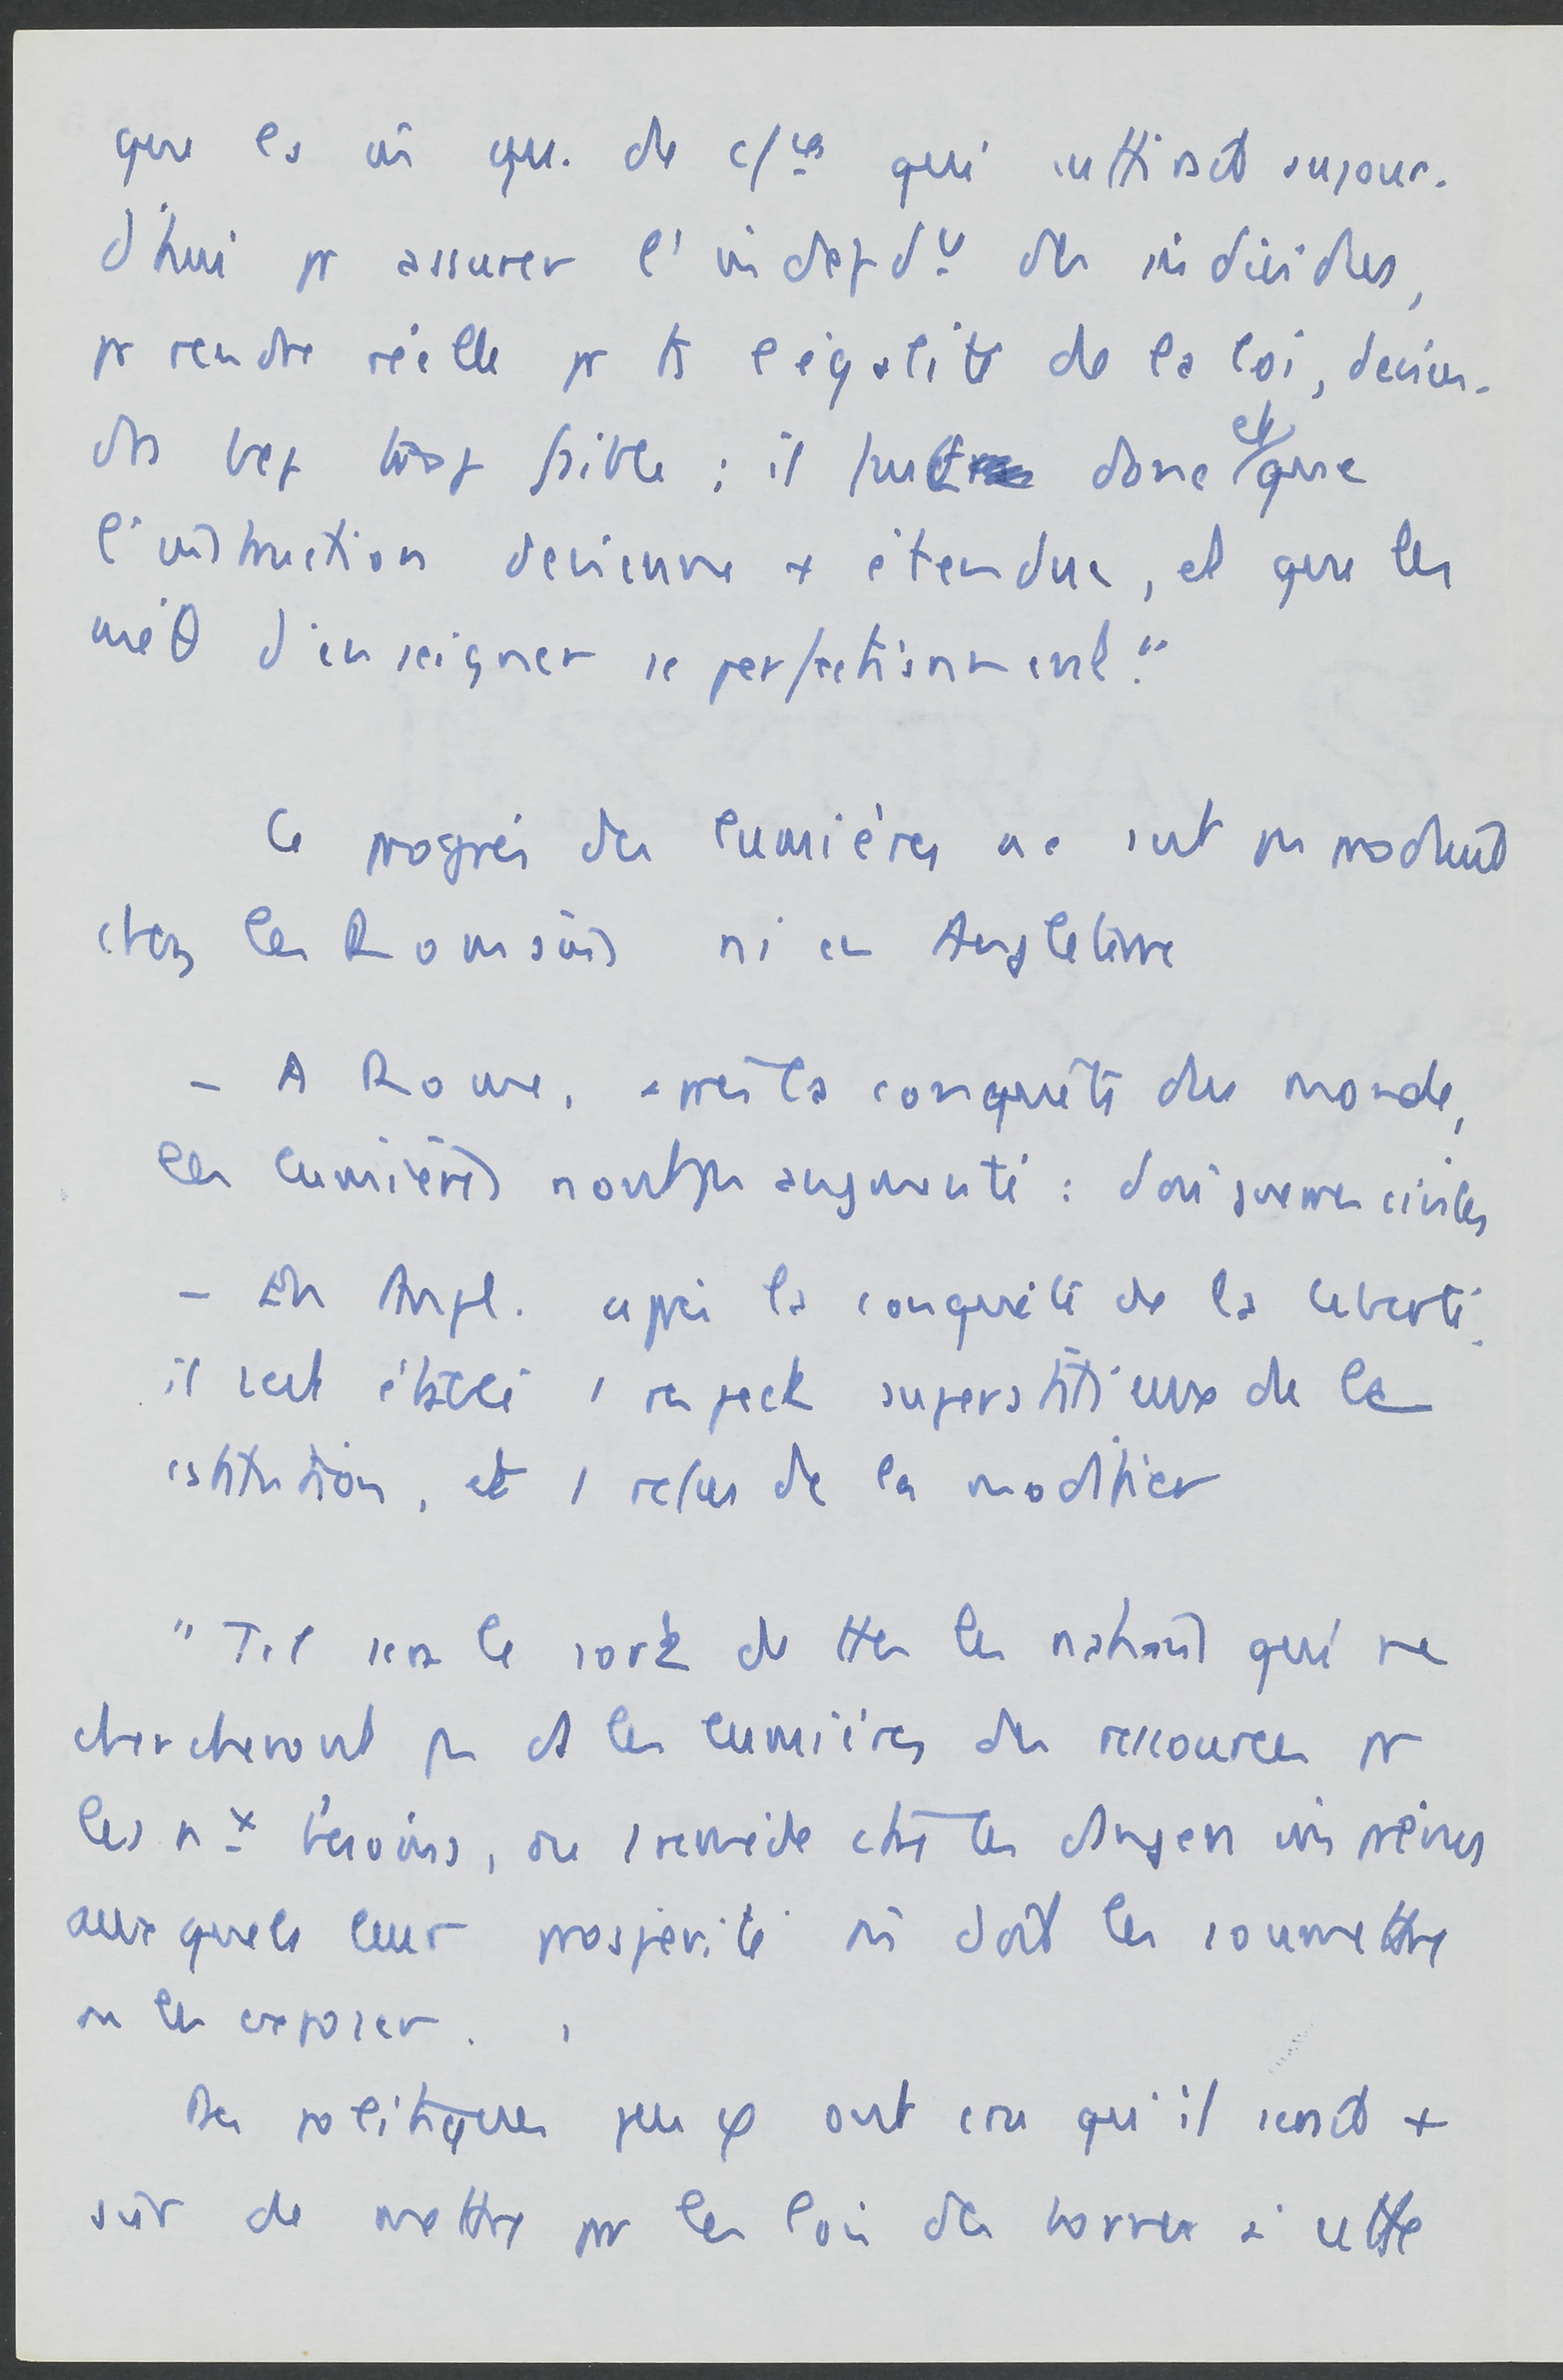 que la m̂ qu. de c/ces qui suffisait aujour-
d'hui pr assurer l'indepdce des individus,
pr rendre réelle pr ts l'égalité de la loi, devien-
dra bcp trop faible ; il faut donc et que
l'instruction devienne + étendue, et que les
méθ d'enseigner se perfectionnent."
Ce progrès des lumières ne s'est pas produit
chez les Romains ni en Angleterre
- A Rome, après la conquête du monde,
les lumières n'ont pas augmenté : d'où guerres civiles
- En Angl. après la conquête de la liberté
il s'est établi 1 respect superstitieux de la
cstitution, et 1 refus de la modifier
"Tel sera le sort de ttes les nations qui ne
chercheront pas ds les lumières des ressources pr
les nx besoins, ou 1 remède ctre les dangers imprévus
auxquels leur prospérité m̂ doit les soumettre
ou les exposer.
Des politiques peu φ ont cru qu'il serait +
sûr de mettre pr les lois des bornes à cette